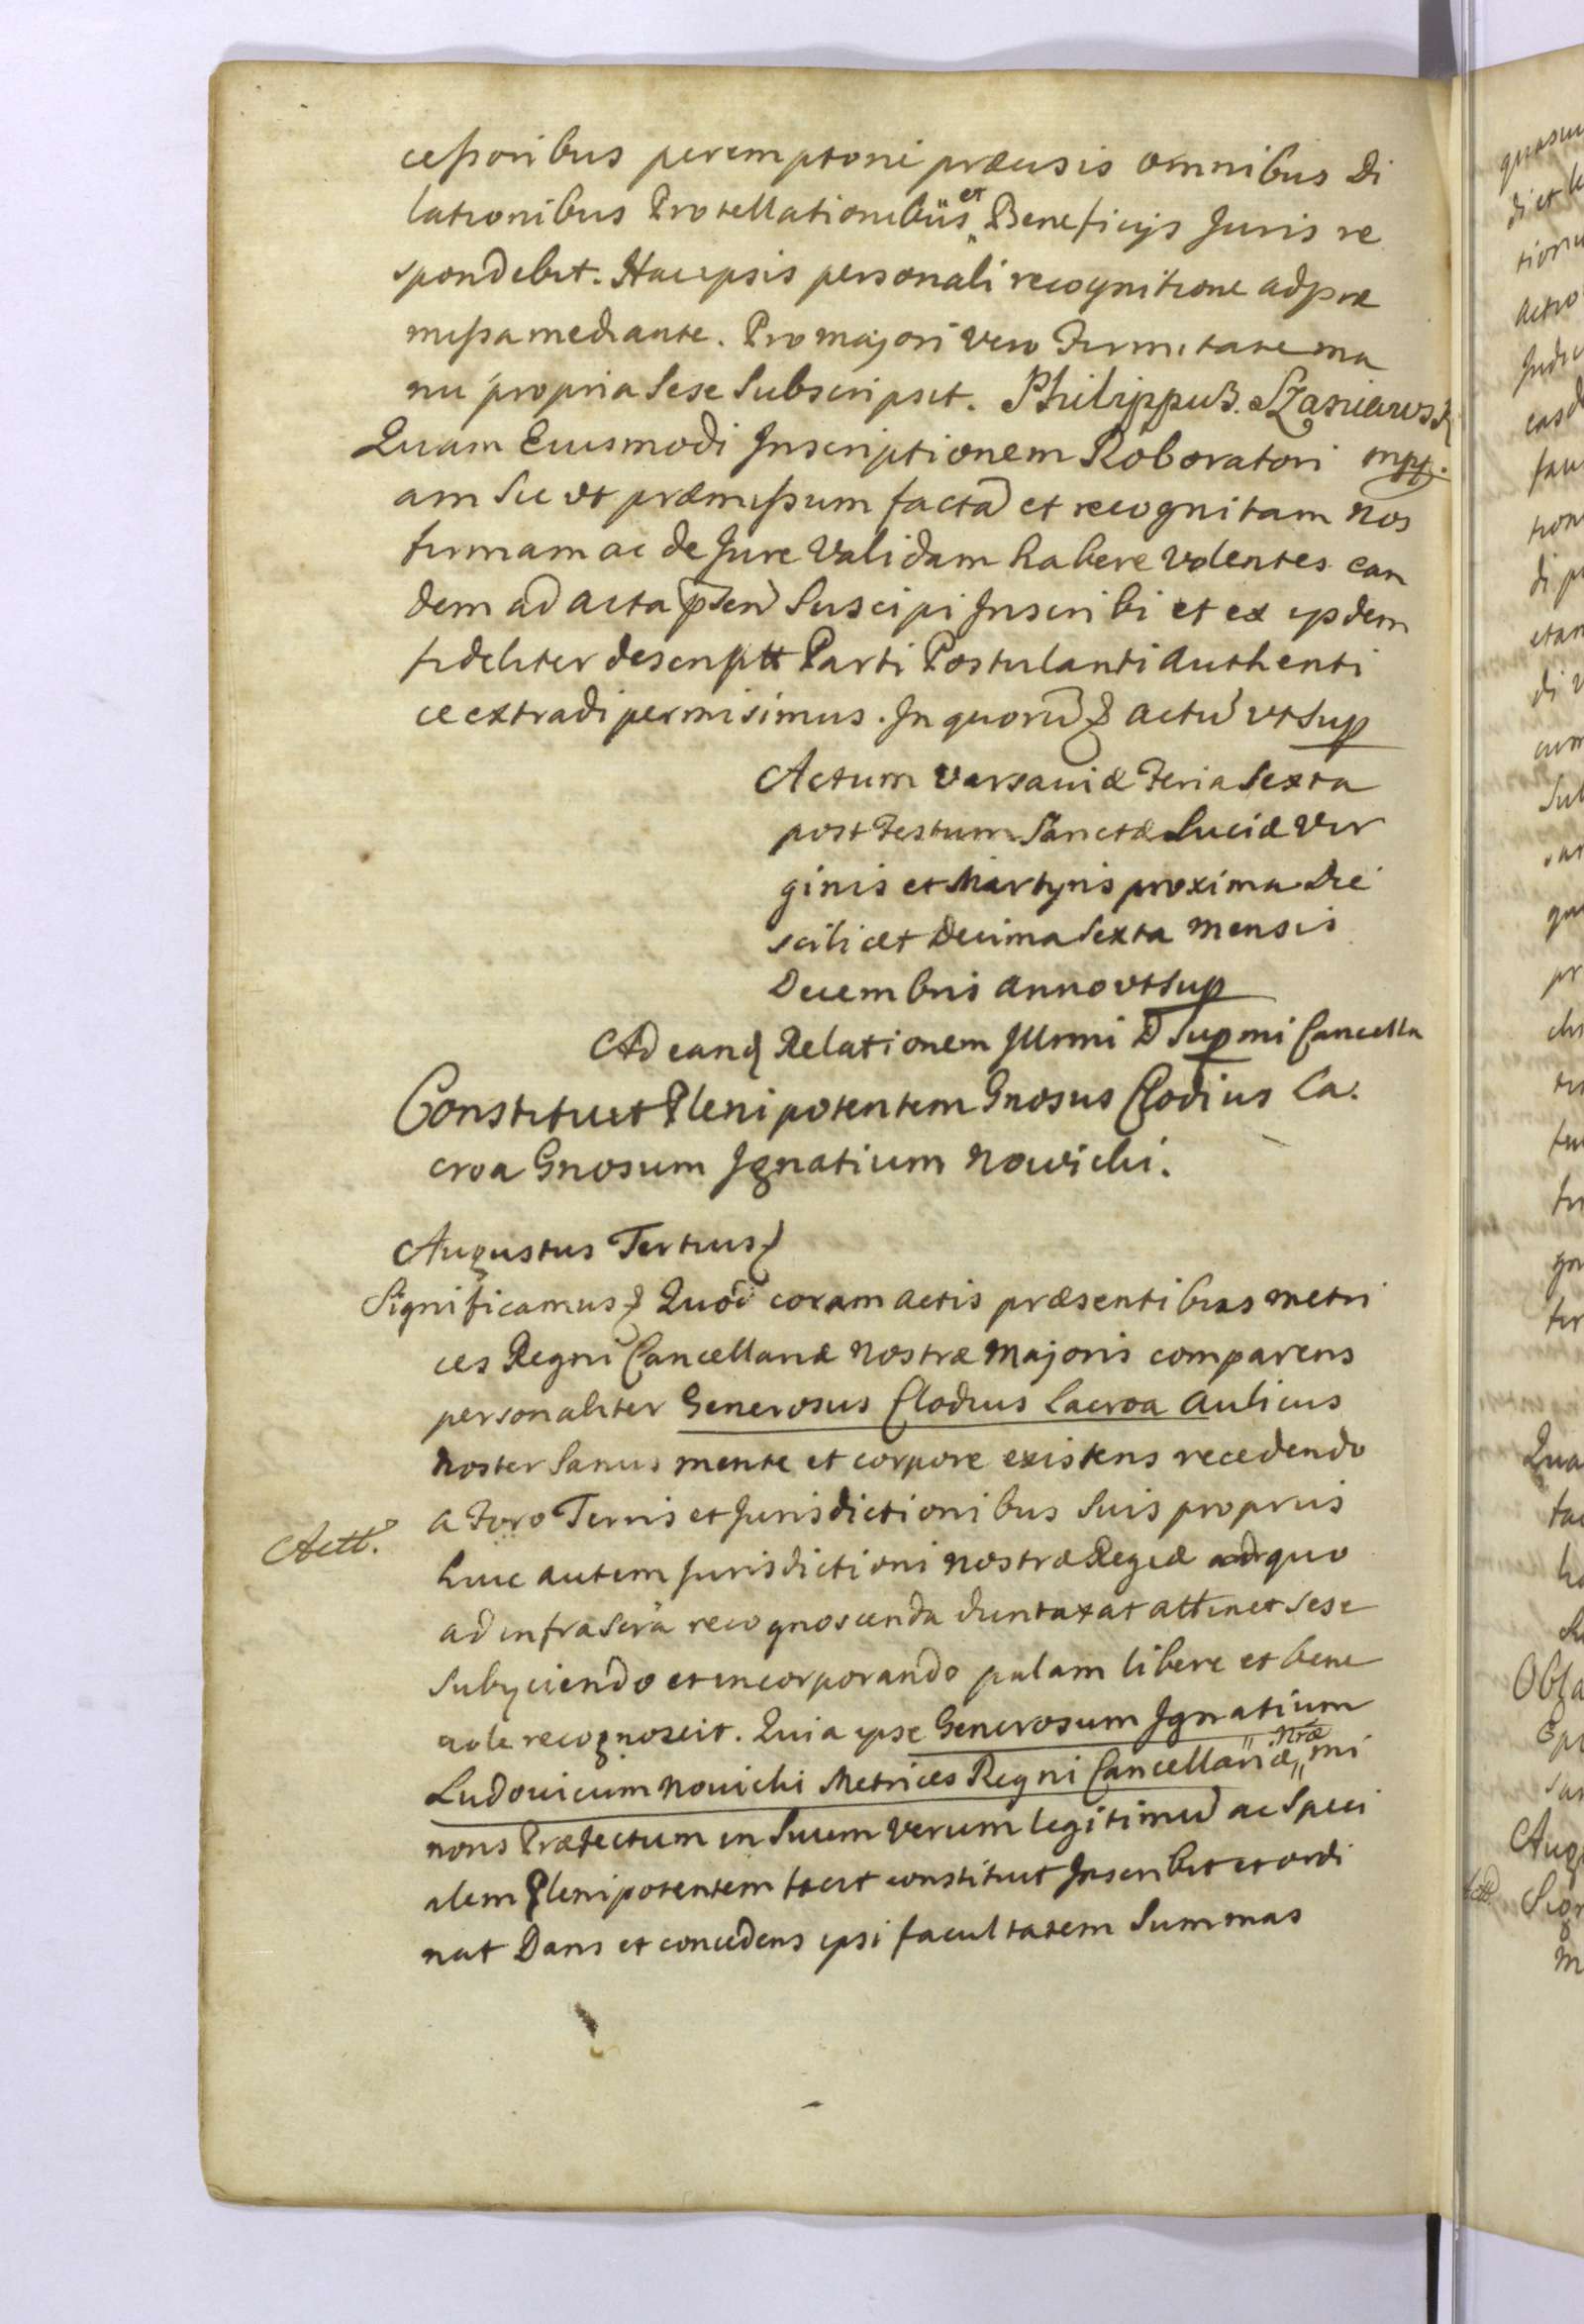 cessoribus peremptorie præcisis omnibus Di
lationibus Protellationibus et Beneficijs Juris re
spondebit. Hac ipsis personali recognitione ad præ
missa mediante. Pro majori vero Firmitate ma
nu propria Sese Subscripsit. Philippus Szaniawski
Quam Eiusmodi Inscriptionem Roboratori mpp.
am Sic ut præmissum factã et recognitam Nos
firmam ac de Jure Validam habere Volentes ean
dem ad acta psen Suscipi Inscribi et ex ijsdem
fideliter descriptt Parti Postulanti Authenti
ce extradi permisimus. In quorũ actũ ut Sup
Actum Varsaviæ Feria Sexta
post Festum Sanctæ Luciæ Vir
ginis et Martyris proxima Die
scilicet Decima Sexta Mensis
Decembris Anno ut Sup
Ad eand Relationem Illrmi D Supmi Cancella
Constituit Plenipotentem Gnosus Clodius La.
croa Gnosum Ignatium Nowicki.
Augustus Tertius
Significamus Quod coram actis præsentibus Metri
ces Regni Cancellariæ Nostræ Majoris comparens
personaliter Generosus Clodius Lacroa Aulicus
Noster Sanus mente et corpore existens recedendo
Actt. a Foro Terris et Jurisdictionibus Suis proprijs
huic autem Jurisdictioni Nostræ Regiæ quo
ad infrascrã recognoscenda duntaxat attinet Sese
Subijciendo et incorporando palam libere et bene
vole recognoscit. Quia ipse Generosum Ignatium
Ludovicum Nowicki Metrices Regni Cancellariæ Nræ mi
noris Præfectum in Suum Verum legitimũ ac Speci
alem Plenipotentem fecit constituit Inscribit et ordi
nat Dans et concedens ipsi facultatem Summas